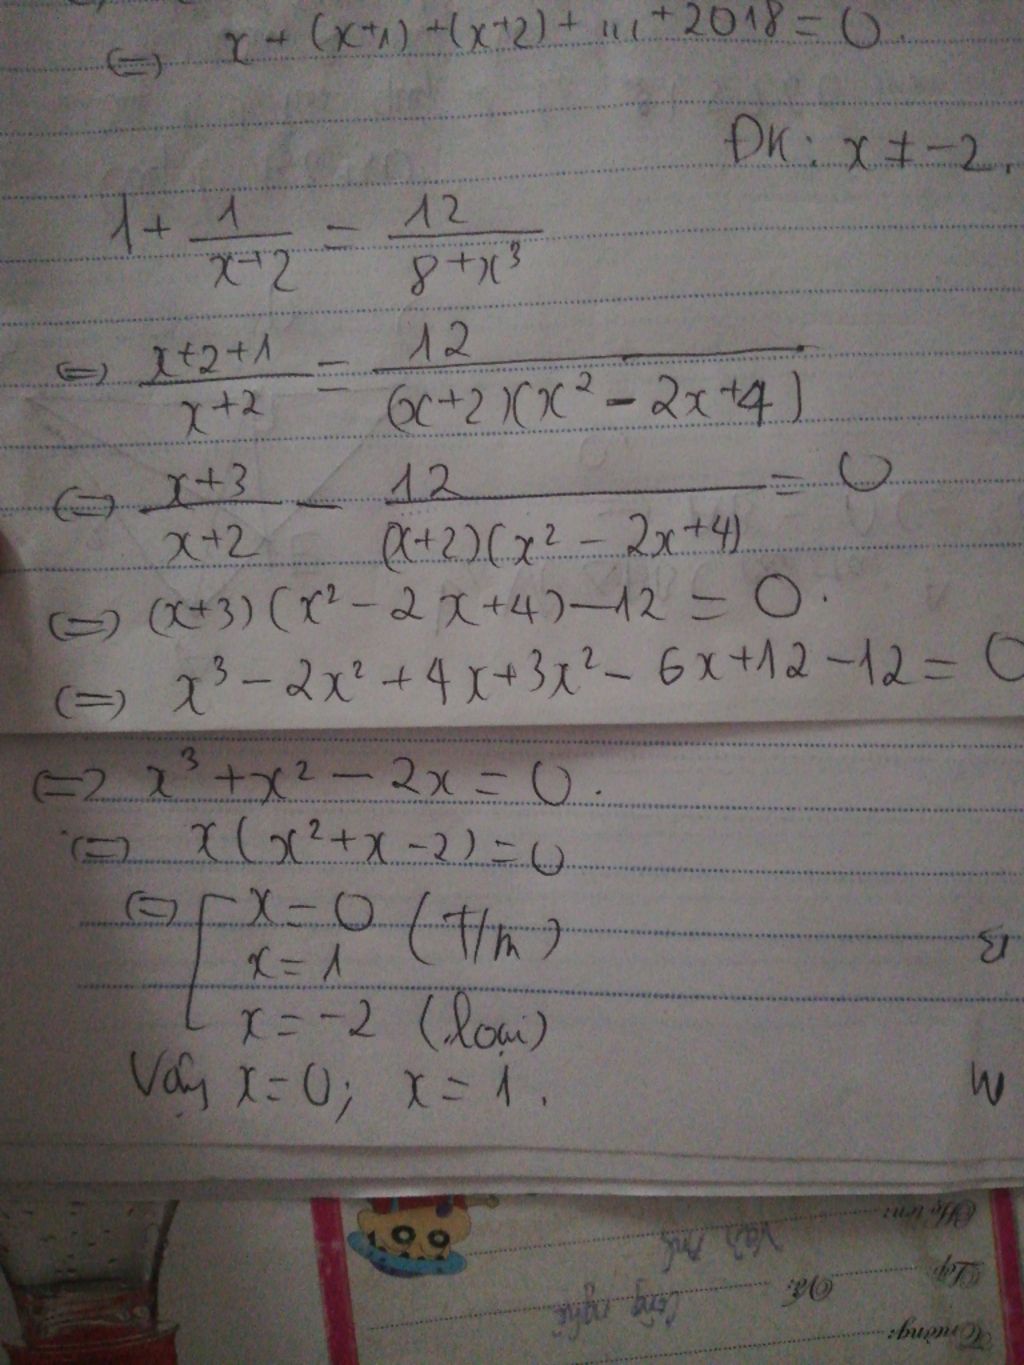 (=) x + (x+1) + (x+2) + ... + 2018 = 0.
ĐK: x ≠ -2.
1 + 1/(x+2) = 12/(8+x³)
(=) (x+2+1)/(x+2) = 12/((x+2)(x² - 2x+4))
(=) (x+3)/(x+2) - 12/((x+2)(x² - 2x+4)) = 0
(=) (x+3)(x² - 2x+4) - 12 = 0.
(=) x³ - 2x² + 4x + 3x² - 6x + 12 - 12 = 0
(=) x³ + x² - 2x = 0.
(=) x(x² + x - 2) = 0
(=) [ x = 0
x = 1 (T/m)
x = -2 (loại)
Vậy x = 0; x = 1.
Họ tên: Vân Anh
Lớp: Vở: Công nghệ
Trường: